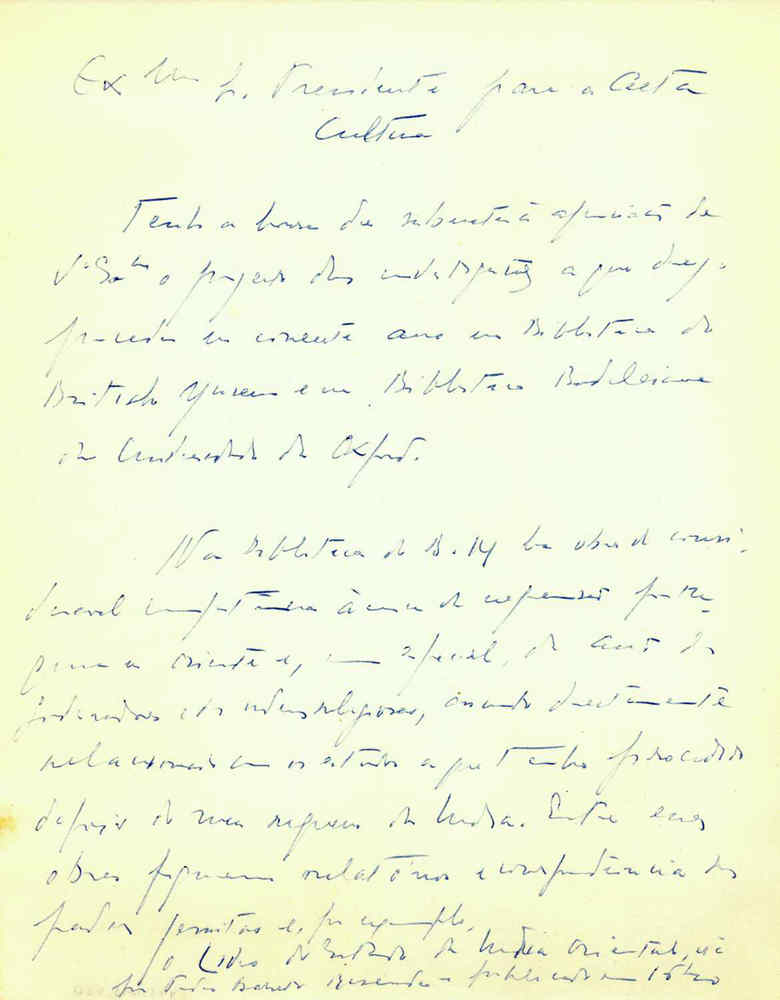 Ex.mo Sr. Presidente para a Acta
Cultura
Tenho a honra de submeter à apreciação de
V. Exa. o projecto das investigações a que
proceder no corrente ano na Biblioteca do
British Museum e na Biblioteca Bodleiana
da Universidade de Oxford.
Na Biblioteca do B. M. há obras de consi-
derável importância àcerca da expansão portu-
guesa no oriente e, em especial, da acção dos
governadores e das ordens religiosas, directamente
relacionadas com os estudos a que tenho procedido
depois do meu regresso da India. Entre essas
obras figuram relatórios e correspondência dos
padres jesuitas e, por exemplo,
o Livro do Estado da India Oriental,
por Pedro Barreto Resende publicado em